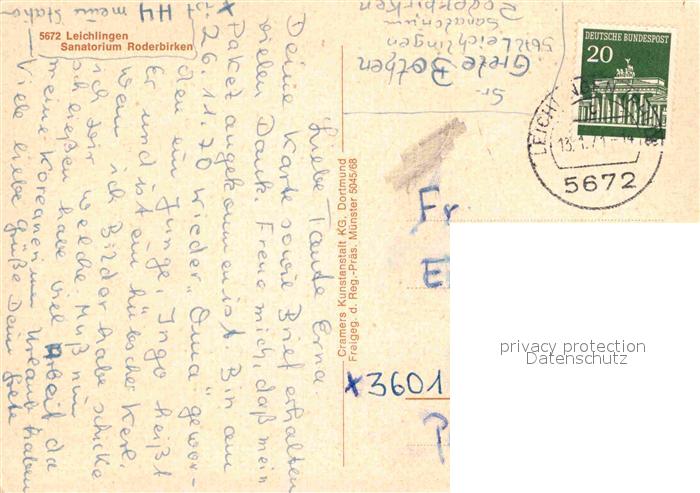 5672 Leichlingen
Sanatorium Roderbirken
Liebe Tante Erna.
Deine Karte sowie Brief erhalten
vielen Dank. Freue mich, daß mein
Paket angekommen ist. Bin am
26.11.70 wieder "Oma" gewor-
den ein Junge. Ingo heißt
er und ist ein hübscher Kerl.
Wenn ich Bilder habe schicke
ich dir welche. Muß nun
schließen habe viel Arbeit da
meine Koreanerinnen Urlaub haben
Viele liebe Grüße Deine Grete
x
ist H4
meine Station
Cramers Kunstanstalt KG, Dortmund
Freigeg. d. Reg.-Präs. Münster 5045/68
Sr
Grete Bothen
565 Leichlingen
Sanatorium
Roderbirken
DEUTSCHE BUNDESPOST
20
13.1.71-14
5672
Fr
x3601
privacy protection
Datenschutz